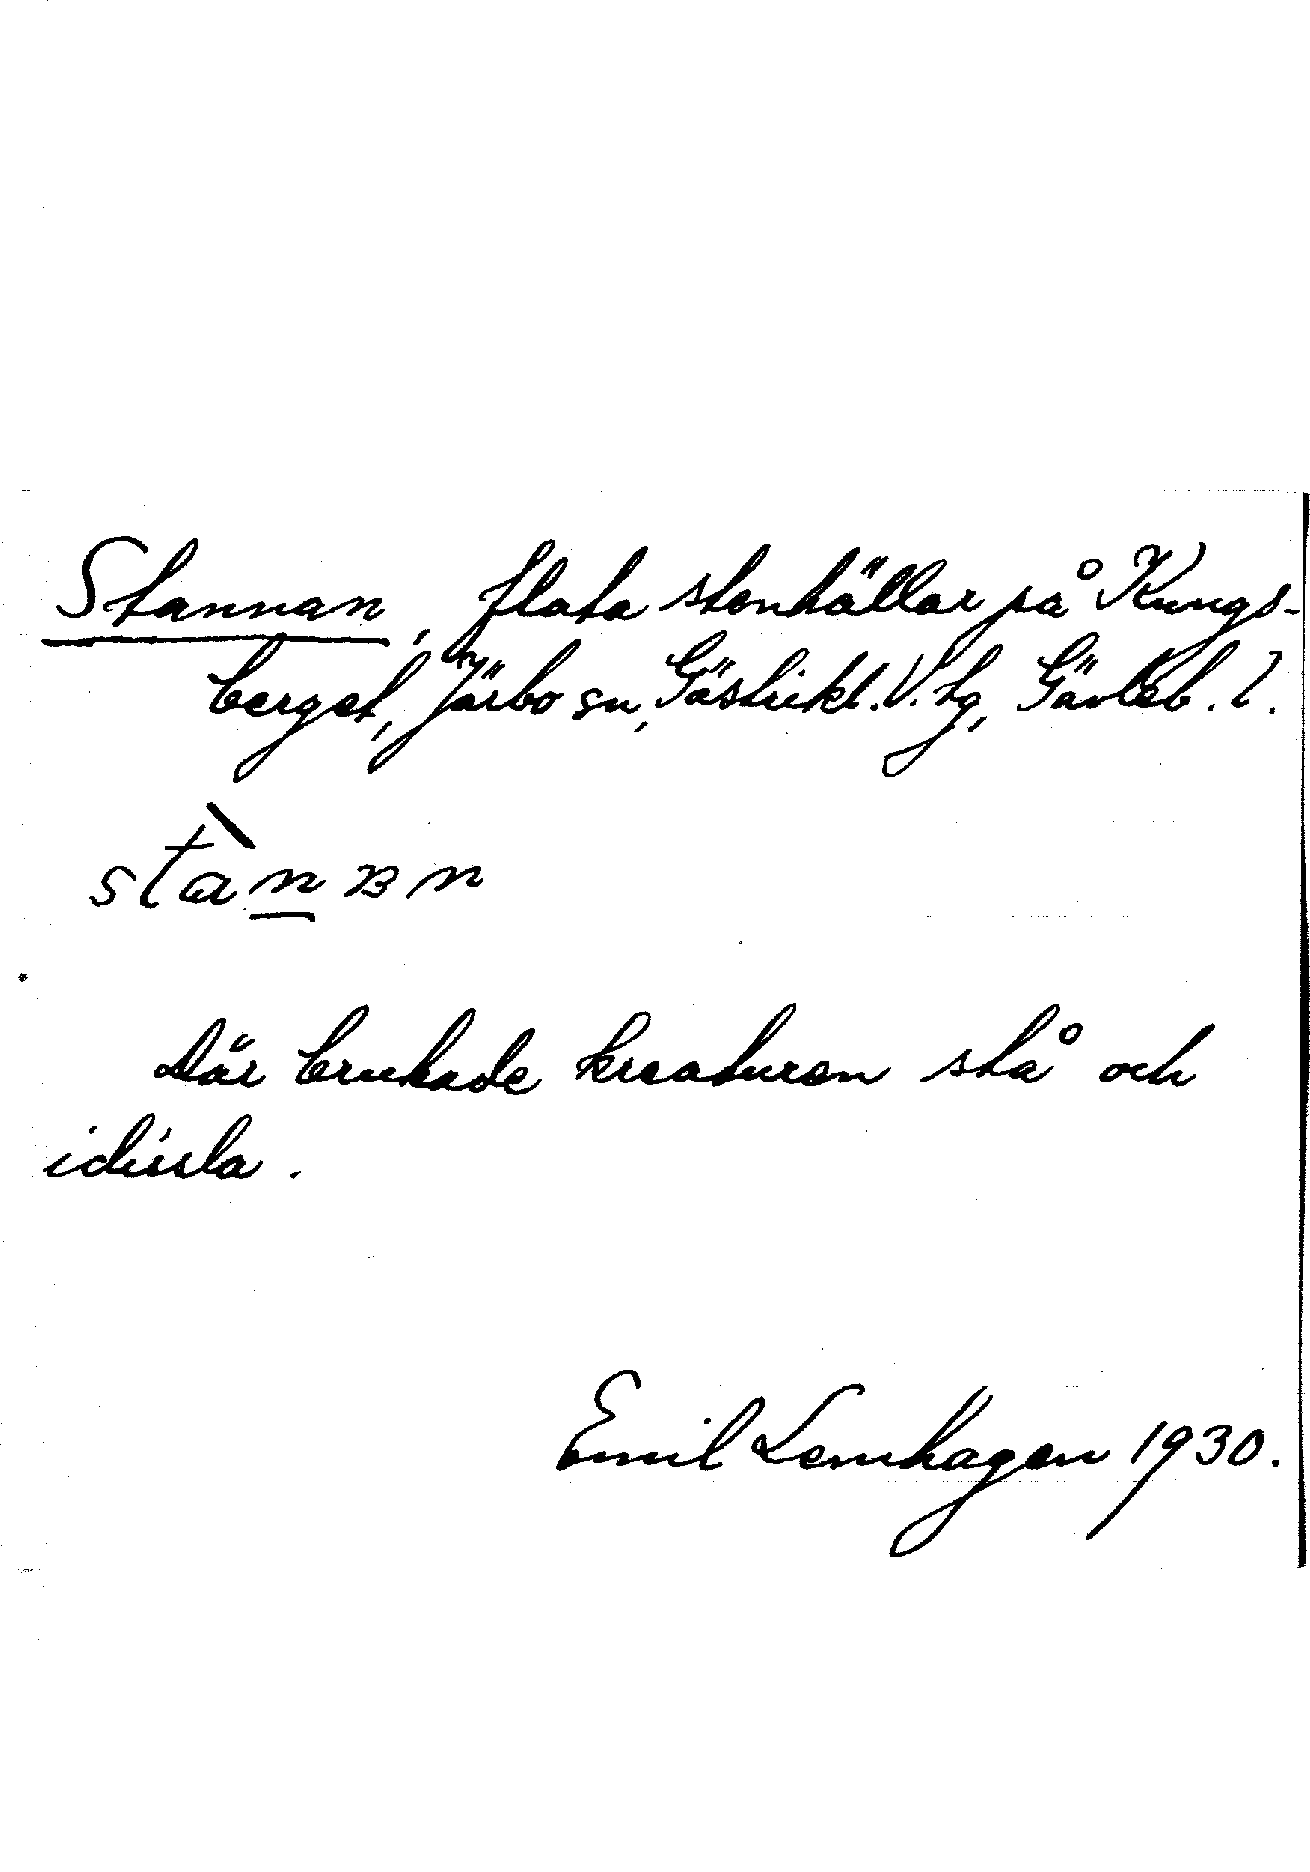 Stannan, flata stenhällar på Kungs-
berget, Järbo sn, Gästrikl. V. tg, Gävleb. l.
stànɐn
Där brukade kreaturen stå och
idissla.
Emil Lennhagen 1930.